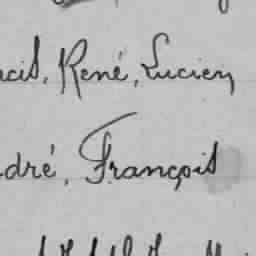 René, Lucien
dré, François